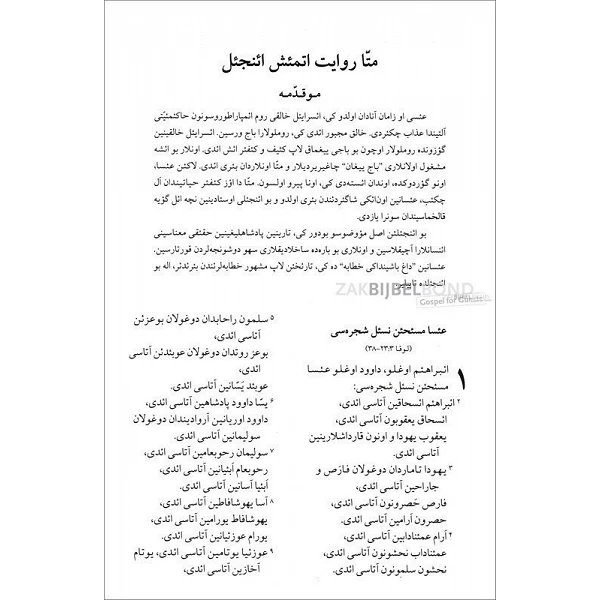 متّا روایت اتمئش ائنجئل
موقدّمه
عئسی او زامان آنادان اولدو کی، ائسرایئل خالقی روم ائمپاراطوروسونون حاکئمئیّتی
آلتیندا عذاب چکئردی. خالق مجبور ائدی کی، روملولارا باج ورسین. ائسرایئل خالقینین
گؤزونده روملولار اوچون بو باجی ییغماق لاپ کثیف و کئفئر ائش ائدی. اونلار بو ائشه
مشغول اولانلاری "باج ییغان" چاغیریردیلار و متّا اونلاردان بئری ائدی. لاکئن عئسا،
اونو گؤردوکده، اوندان ائسته‌دی کی، اونا پیرو اولسون. متّا دا اؤز کئفئر حیاتیندان ال
چکئب، عئسانین اون‌ائکی شاگئردئندن بئری اولدو و بو ائنجئلی اوستادینین نچه ائل گؤیه
قالخماسیندان سونرا یازدی.
بو ائنجئلئن اصل مؤوضوسو بودور کی، تارینین پادشاهلیغینین حقئقی معناسینی
ائنسانلارا آچیقلاسین و اونلاری بو باره‌ده ساخلادیقلاری سهو دوشونجه‌لردن قورتارسین.
عئسانین "داغ باشینداکی خطابه" ده کی، تارئخئن لاپ مشهور خطابه‌لرئندن بئرئدئر، اله بو
ائنجئلده تاپیلیر.
ZAKBIJBELBOND
Gospel for Guests
عئسا مسئحئن نسئل شجره‌سی
(لوقا ۳:۲۳-۳۸)
۱ ائبراهئم اوغلو، داوود اوغلو عئسا
مسئحئن نسئل شجره‌سی:
۲ ائبراهئم ائسحاقین آتاسی ائدی،
ائسحاق یعقوبون آتاسی ائدی،
یعقوب یهودا و اونون قارداشلارینین
آتاسی ائدی.
۳ یهودا تاماردان دوغولان فارَص و
جاراحین آتاسی ائدی،
فارص حَصرونون آتاسی ائدی،
حصرون آرامین آتاسی ائدی.
۴ آرام عمئنادابین آتاسی ائدی،
عمئناداب نحشونون آتاسی ائدی،
نحشون سلمونون آتاسی ائدی.
۵ سلمون راحابدان دوغولان بوعزئن
آتاسی ائدی،
بوعز روتدان دوغولان عوبئدئن آتاسی
ائدی،
عوبئد یَسّانین آتاسی ائدی.
۶ یسّا داوود پادشاهین آتاسی ائدی،
داوود اوریانین آروادیندان دوغولان
سولیمانین آتاسی ائدی.
۷ سولیمان رحوبعامین آتاسی ائدی،
رحوبعام اَبئیانین آتاسی ائدی،
اَبئیا آسانین آتاسی ائدی.
۸ آسا یهوشافاطین آتاسی ائدی،
یهوشافاط یورامین آتاسی ائدی،
یورام عوزئیانین آتاسی ائدی.
۹ عوزئیا یوتامین آتاسی ائدی، یوتام
آخازین آتاسی ائدی،